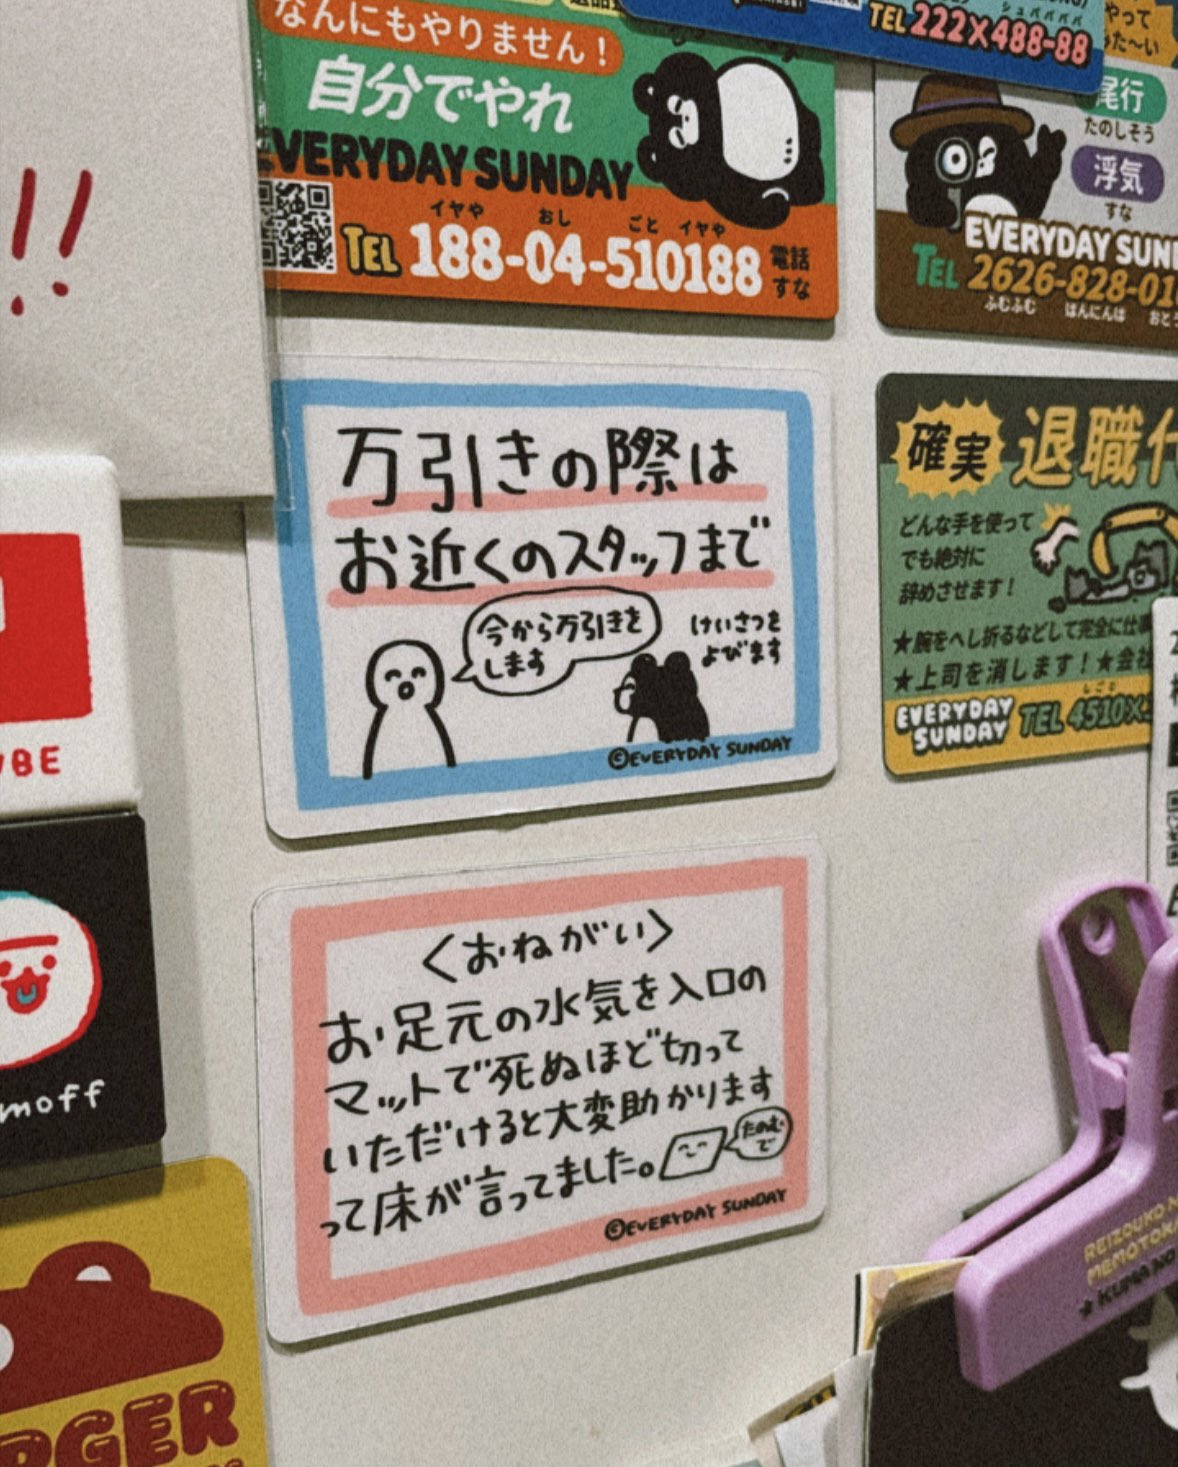 なんにもやりません！
自分でやれ
EVERYDAY SUNDAY
イヤや おし ごと イヤや
TEL 188-04-510188 電話
すな
シュババババ
TEL 222×488-88
やって
尾行
たのしそう
浮気
すな
EVERYDAY SUN
TEL 2626-828-01
ふむふむ はんにんは おとう
!!
万引きの際は
お近くのスタッフまで
今から万引きを
します
けいさつを
よびます
©EVERYDAY SUNDAY
確実
退職代
どんな手を使って
でも絶対に
辞めさせます！
★腕をへし折るなどして完全に仕事
★上司を消します！★会社
EVERYDAY
SUNDAY
しごと
TEL 4510×
BE
moff
〈おねがい〉
お足元の水気を入口の
マットで死ぬほど切って
いただけると大変助かります
って床が言ってました。
たのむ
で
©EVERYDAY SUNDAY
RGER
REIZOUKO N
MEMOTOKA
★KUMA NO